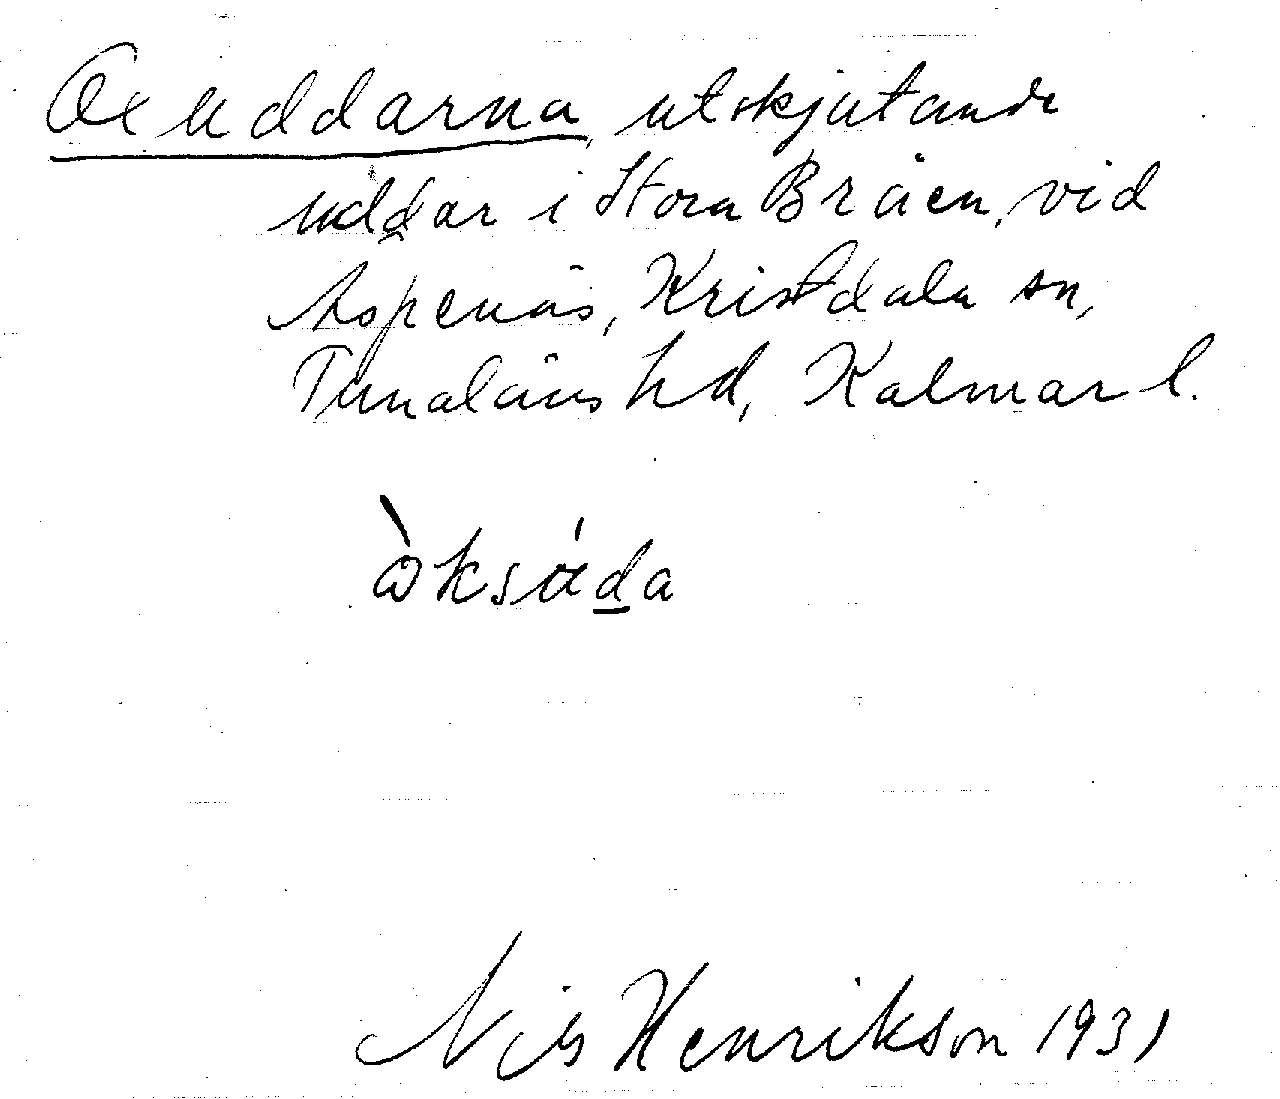 Oxuddarna, utskjutande
uddar i Stora Bråen, vid
Aspenäs, Kristdala sn,
Tunaläns hd, Kalmar l.
Nils Henrikson 1931